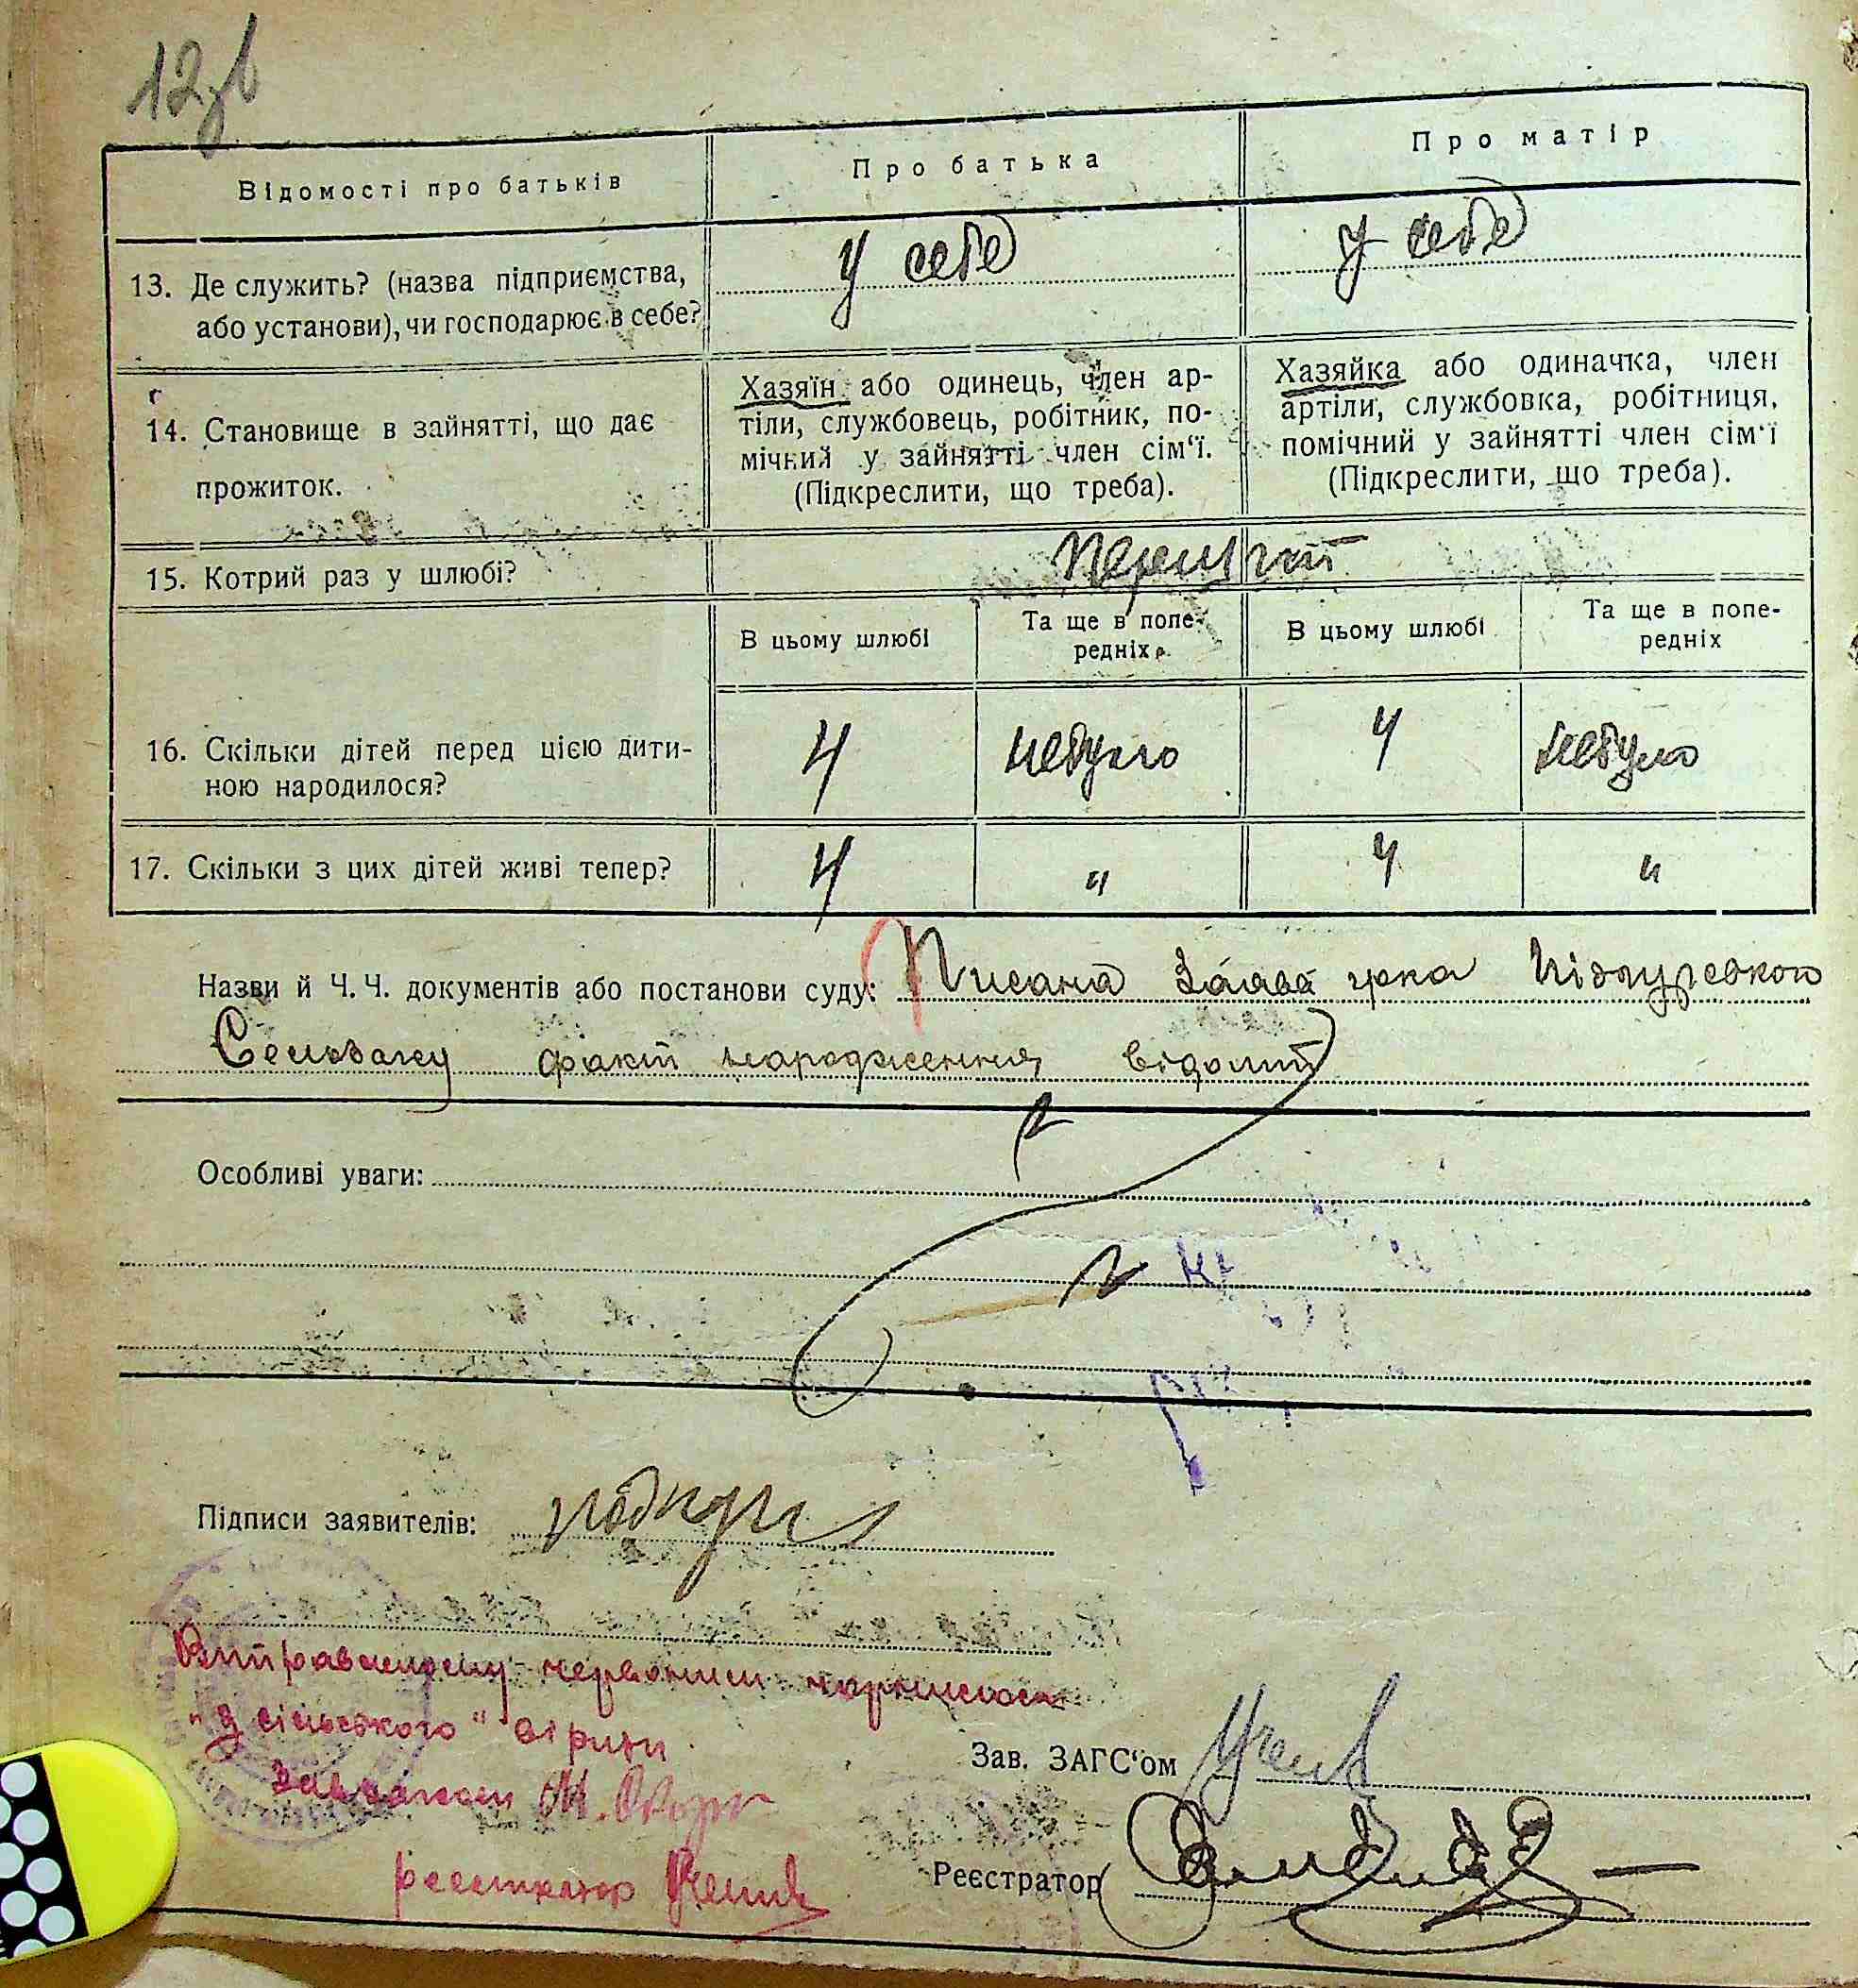 12зв
Відомості про батьків
Про батька
Про матір
13. Де служить? (назва підприємства,
або установи), чи господарює в себе?
у себе
у себе
14. Становище в зайнятті, що дає
прожиток.
Хазяїн або одинець, член ар-
тіли, службовець, робітник, по-
мічний у зайнятті член сім‘ї.
(Підкреслити, що треба).
Хазяйка або одиначка, член
артіли, службовка, робітниця,
помічний у зайнятті член сім‘ї
(Підкреслити, що треба).
15. Котрий раз у шлюбі?
В цьому шлюбі
Та ще в попе-
редніх
В цьому шлюбі
Та ще в попе-
редніх
16. Скільки дітей перед цією дити-
ною народилося?
4
небуло
4
небуло
17. Скільки з цих дітей живі тепер?
4
"
4
"
Назви й Ч. Ч. документів або постанови суду: Писана Заява
факт народження відомий
Особливі уваги:
Підписи заявителів:
червоним чорнилом
"з сільського"
Зав. ЗАГС‘ом
реєстратор
Реєстратор